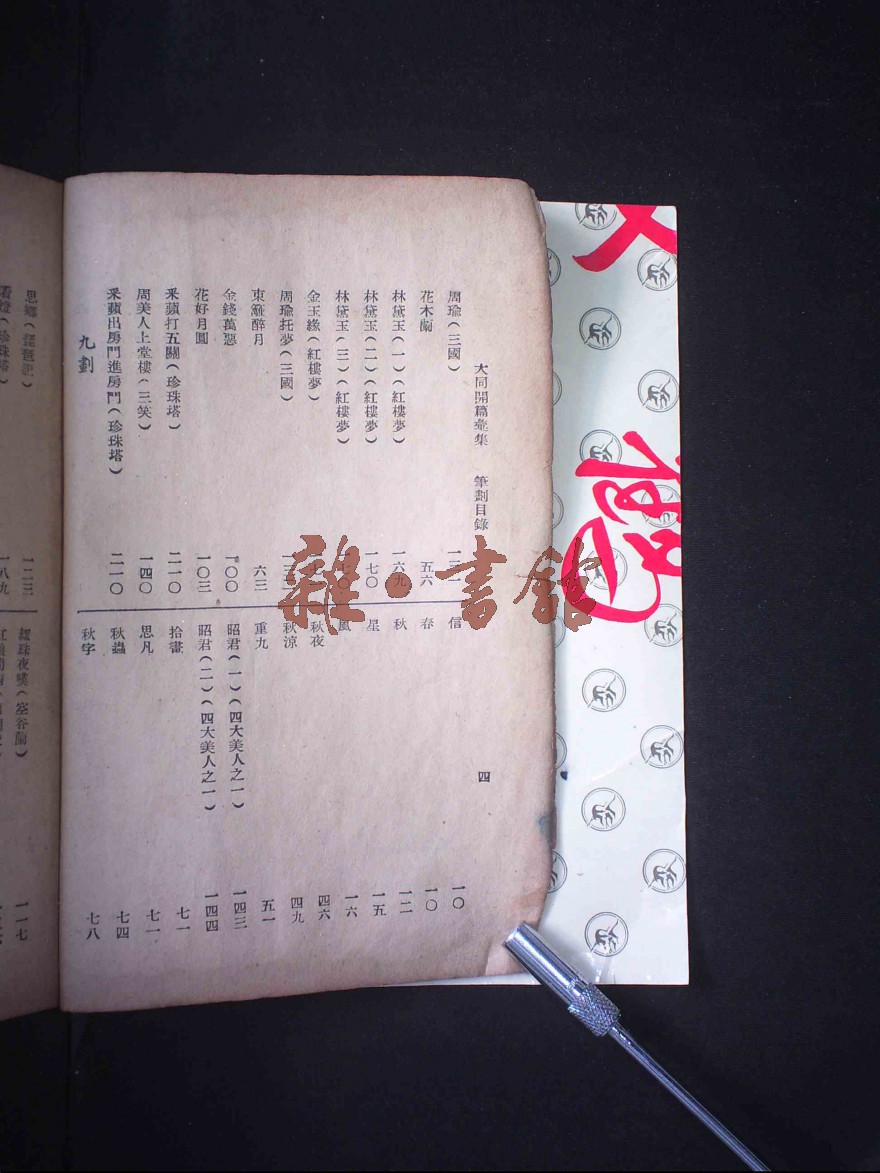 大同開篇彙集　筆劃目錄　四
周瑜(三國)　一三一
花木蘭　五六
林黛玉(一)(紅樓夢)　一六九
林黛玉(二)(紅樓夢)　一七〇
林黛玉(三)(紅樓夢)
金玉緣(紅樓夢)
周瑜托夢(三國)
東籬醉月　六三
金錢萬惡　一〇〇
花好月圓　一〇三
釆蘋打五關(珍珠塔)　二一〇
周美人上堂樓(三笑)　一四〇
釆蘋出房門進房門(珍珠塔)　二一〇
九劃
信　一〇
春　一〇
秋　一二
星　一五
風　一六
秋夜　四六
秋涼　四九
重九　五一
昭君(一)(四大美人之一)　一四三
昭君(二)(四大美人之一)　一四四
拾畫　七一
思凡　七一
秋蟲　七四
秋字　七八
思鄉(琵琶記)　一二三
看燈(珍珠塔)　一八九
(空谷蘭)　一一七
雜·書館